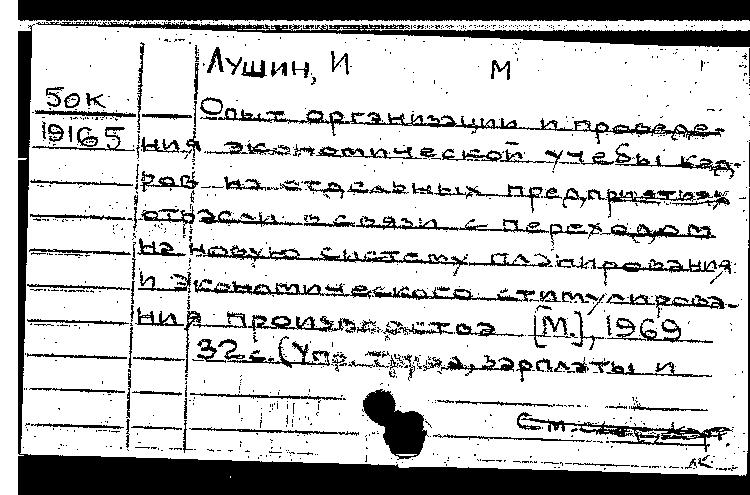 Лушин, И М
50к
Опыт организации и проведе-
19165
ния экономической учебы кад-
ров на отдельных предприятиях
отрасли в связи с переходом
на новую систему планирования
и экономического стимулирова-
ния производства [М.], 1969
32 с. (Упр. труда, зарплаты и
См. след. карт.